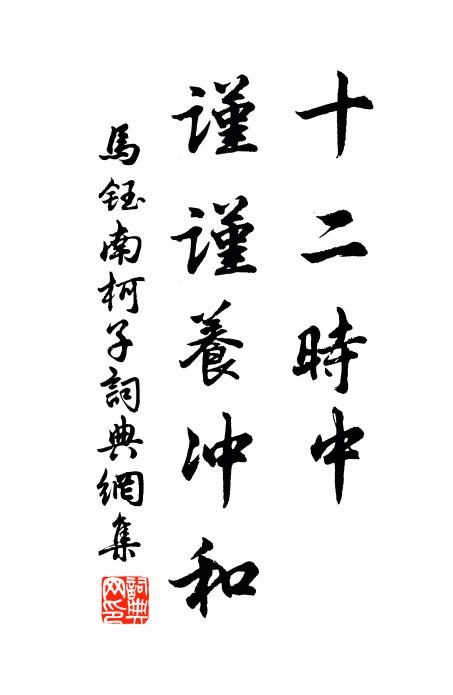 十二時中
謹謹養沖和
馬鈺南柯子詞典網集
詞典网印